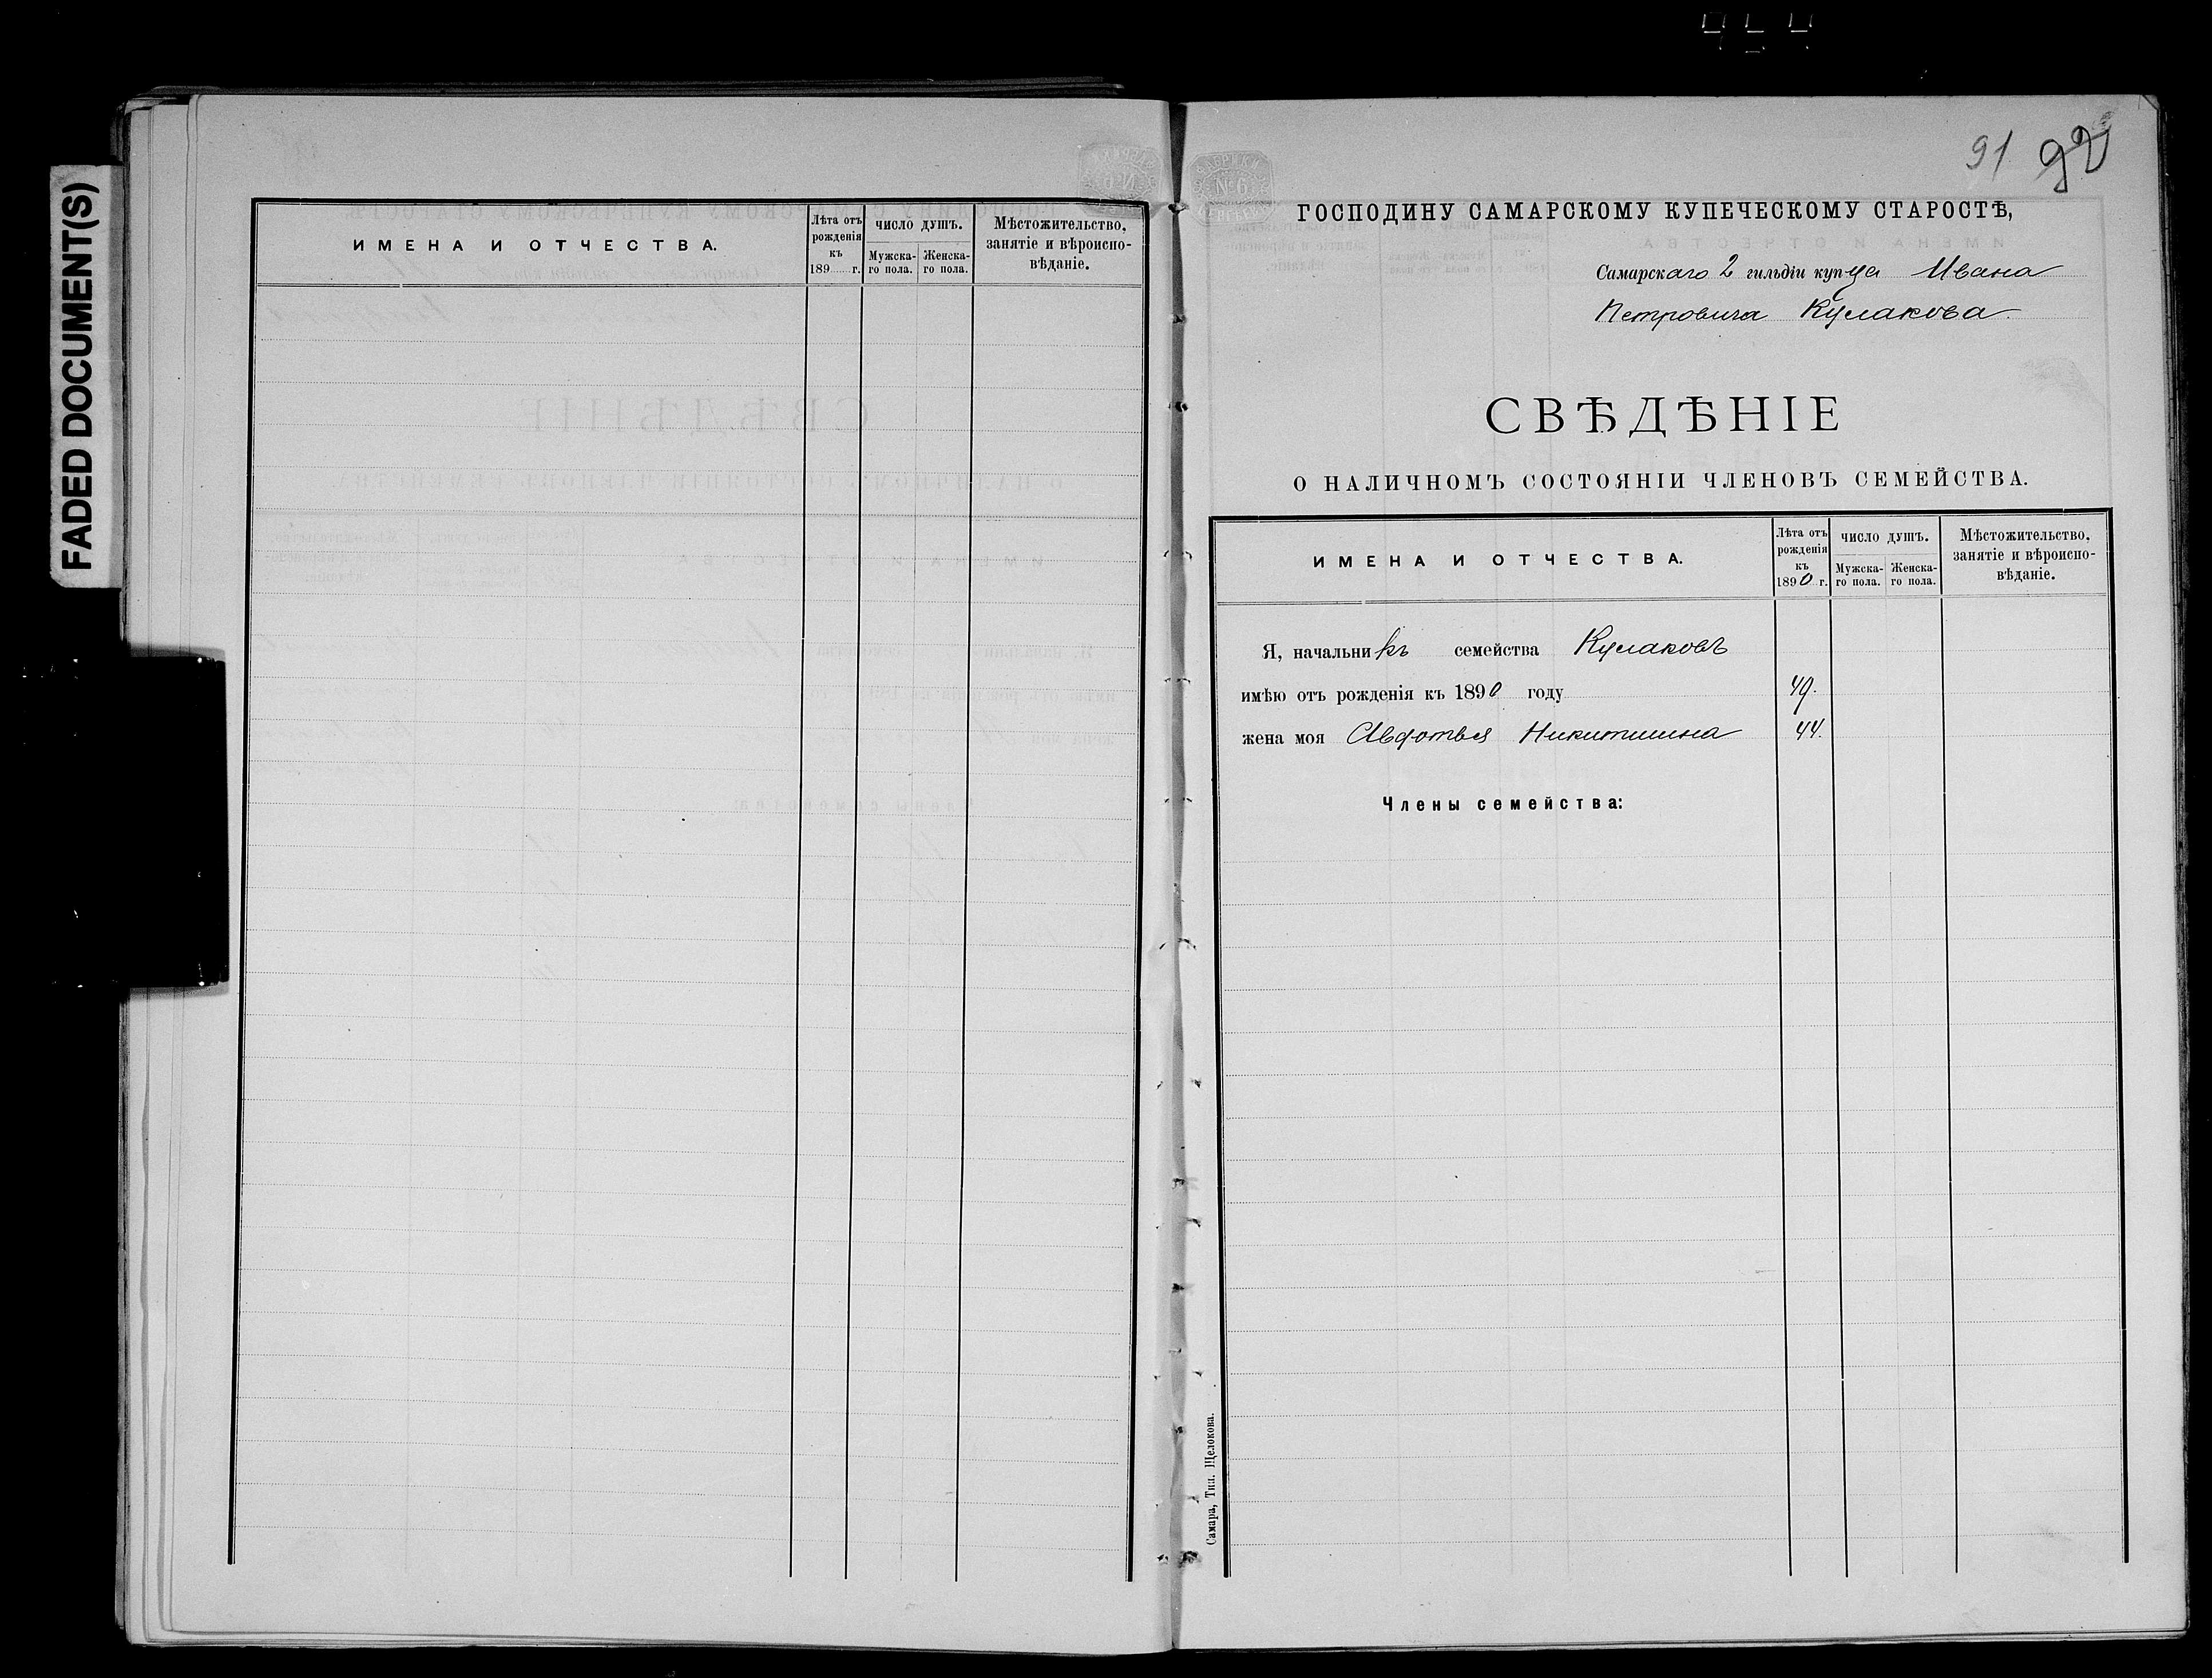 FADED DOCUMENT(S)
ИМЕНА И ОТЧЕСТВА.
Лѣта отъ рожденія къ 189 г.
ЧИСЛО ДУШЪ.
Мужска-го пола.
Женска-го пола.
Мѣстожительство, занятіе и вѣроиспо-вѣданіе.
91 92
№6
ГОСПОДИНУ САМАРСКОМУ КУПЕЧЕСКОМУ СТАРОСТѢ,
Самарскаго 2 гильдіи купца Ивана
Петровича Кулакова.
СВѢДѢНІЕ
О НАЛИЧНОМЪ СОСТОЯНІИ ЧЛЕНОВЪ СЕМЕЙСТВА.
ИМЕНА И ОТЧЕСТВА.
Лѣта отъ рожденія къ 1890 г.
ЧИСЛО ДУШЪ.
Мужска-го пола.
Женска-го пола.
Мѣстожительство, занятіе и вѣроиспо-вѣданіе.
Я, начальникъ семейства Кулаковъ
имѣю отъ рожденія къ 1890 году 49.
жена моя Авдотья Никитишна 44.
Члены семейства:
Самара, Тип. Щелокова.